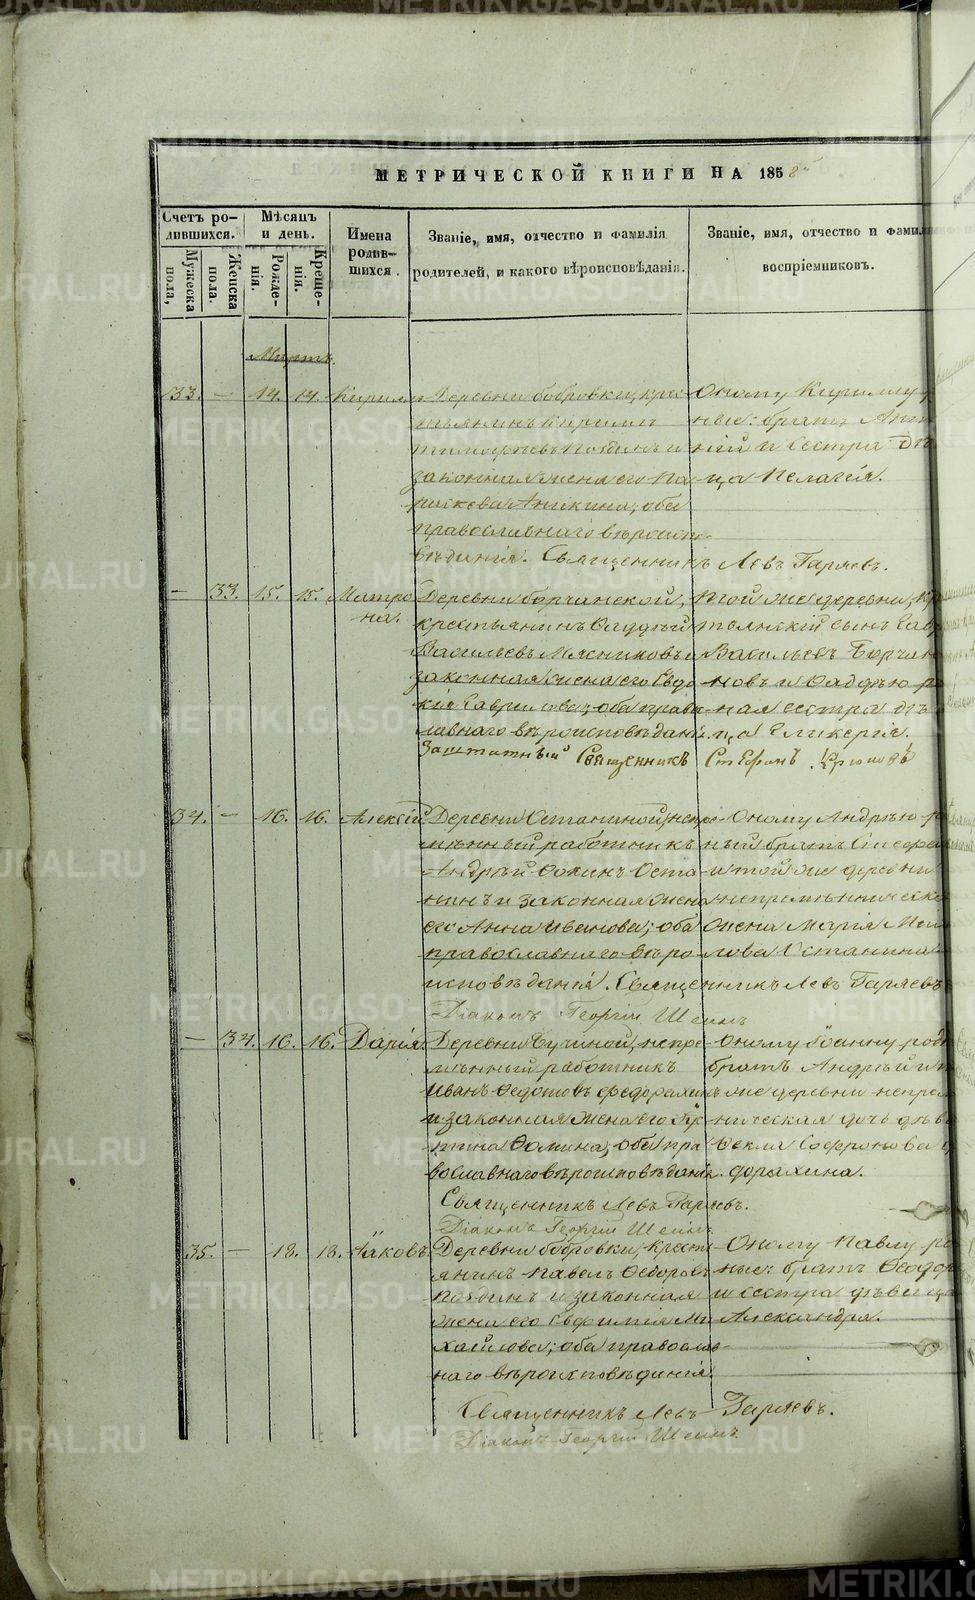 МЕТРИЧЕСКОЙ КНИГИ НА 1858
Счетъ ро-
дившихся.
Мужеска
пола,
Женска
пола.
Мѣсяцъ
и день.
Рожде-
нія.
Креще-
нія.
Имена
родив-
шихся.
Званіе, имя, отчество и фамилія
родителей, и какого вѣроисповѣданія.
Званіе, имя, отчество и фамил
воспріемниковъ.
Мартъ.
33. — 14. 14. Кирилъ
Деревни бобровки, крес-
тьянинъ Кирилъ
Тимофеевъ и
законная жена его Па-
раскева Аникина; оба
православнаго вѣроиспо-
вѣданія. Священникъ Левъ Гаряевъ.
Оному Кириллу
ные: братъ
ній и сестра дѣ
ца Пелагія.
— 33. 15. 15. Матро
на.
Деревни борчанской,
крестьянинъ Фаддѣй
Васильевъ Мясниковъ и
законная жена его Евдо
кія Гаврилова; оба право
славнаго вѣроисповѣдані
Заштатный Священникъ Стефанъ
той же деревни, Кр
тьянскій сынъ Гав
Васильевъ Борчан
новъ и Фаддѣю ро
ная сестра дѣ
ца Гликерія.
34. — 16. 16. Алексій
Деревни Останиной, непре
мѣнный работникъ
Андрей Фокинъ Оста-
нинъ и законная жена
его Анна Иванова; оба
православнаго вѣро
исповѣданія. Священникъ Левъ Гаряевъ
Діаконъ Георгій Шеинъ
Оному Андрею р
ный братъ Стефа
и той же деревни
непремѣнническа
жена Марія
лова Останина
— 34. 16. 16. Дарія.
Деревни непре
мѣнный работникъ
Иванъ Федотовъ Федорахинъ
и законная жена его
Фомина; оба пра
вославнаго вѣроисповѣданія.
Священникъ Левъ Гаряевъ.
Діаконъ Георгій Шеинъ
Оному Іоанну род
братъ Андрей и
же деревни непрем
ническая дочь дѣв
Фекла Софронова
дорахина.
35. — 18. 18. Іаковъ
Деревни бобровки, Кресть
янинъ Павелъ Феодоровъ
и законная
жена его Евфимія Ми
хайлова; оба православ-
наго вѣроисповѣданія
Священникъ Левъ Гаряевъ.
Діаконъ Георгій Шеинъ
Оному Павлу ро
ные: братъ Феодор
и сестра дѣвица
Александра.
METRIKI.GASO-URAL.RU